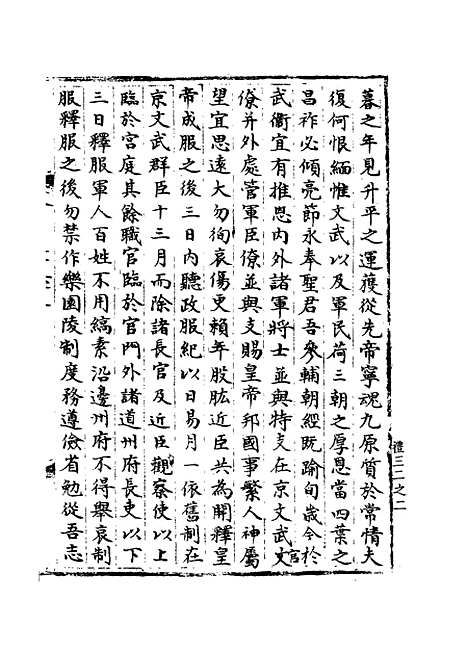 暮之年見升平之運獲從先帝寧魂九原質於常情夫
復何恨緬惟文武以及軍民荷三朝之厚恩當四葉之
昌祚必傾亮節永奉聖君吾參輔朝經既踰旬歲今於
武衛宜有推恩内外諸軍將士並與特支在京文武文官
僚并外處管軍臣僚並與支賜皇帝邦國事繁人神屬
望宜思遠大勿徇哀傷更賴年股肱近臣共為開釋皇
帝成服之後三日内聽政服紀以日易月一依舊制在
京文武群臣十三月而除諸長官及近臣觀察使以上
臨於宮庭其餘職官臨於宮門外諸道州府長吏以下
三日釋服軍人百姓不用縞素沿邊州府不得舉哀制
服釋服之後勿禁作樂園陵制度務遵儉省勉從吾志
禮三二之二